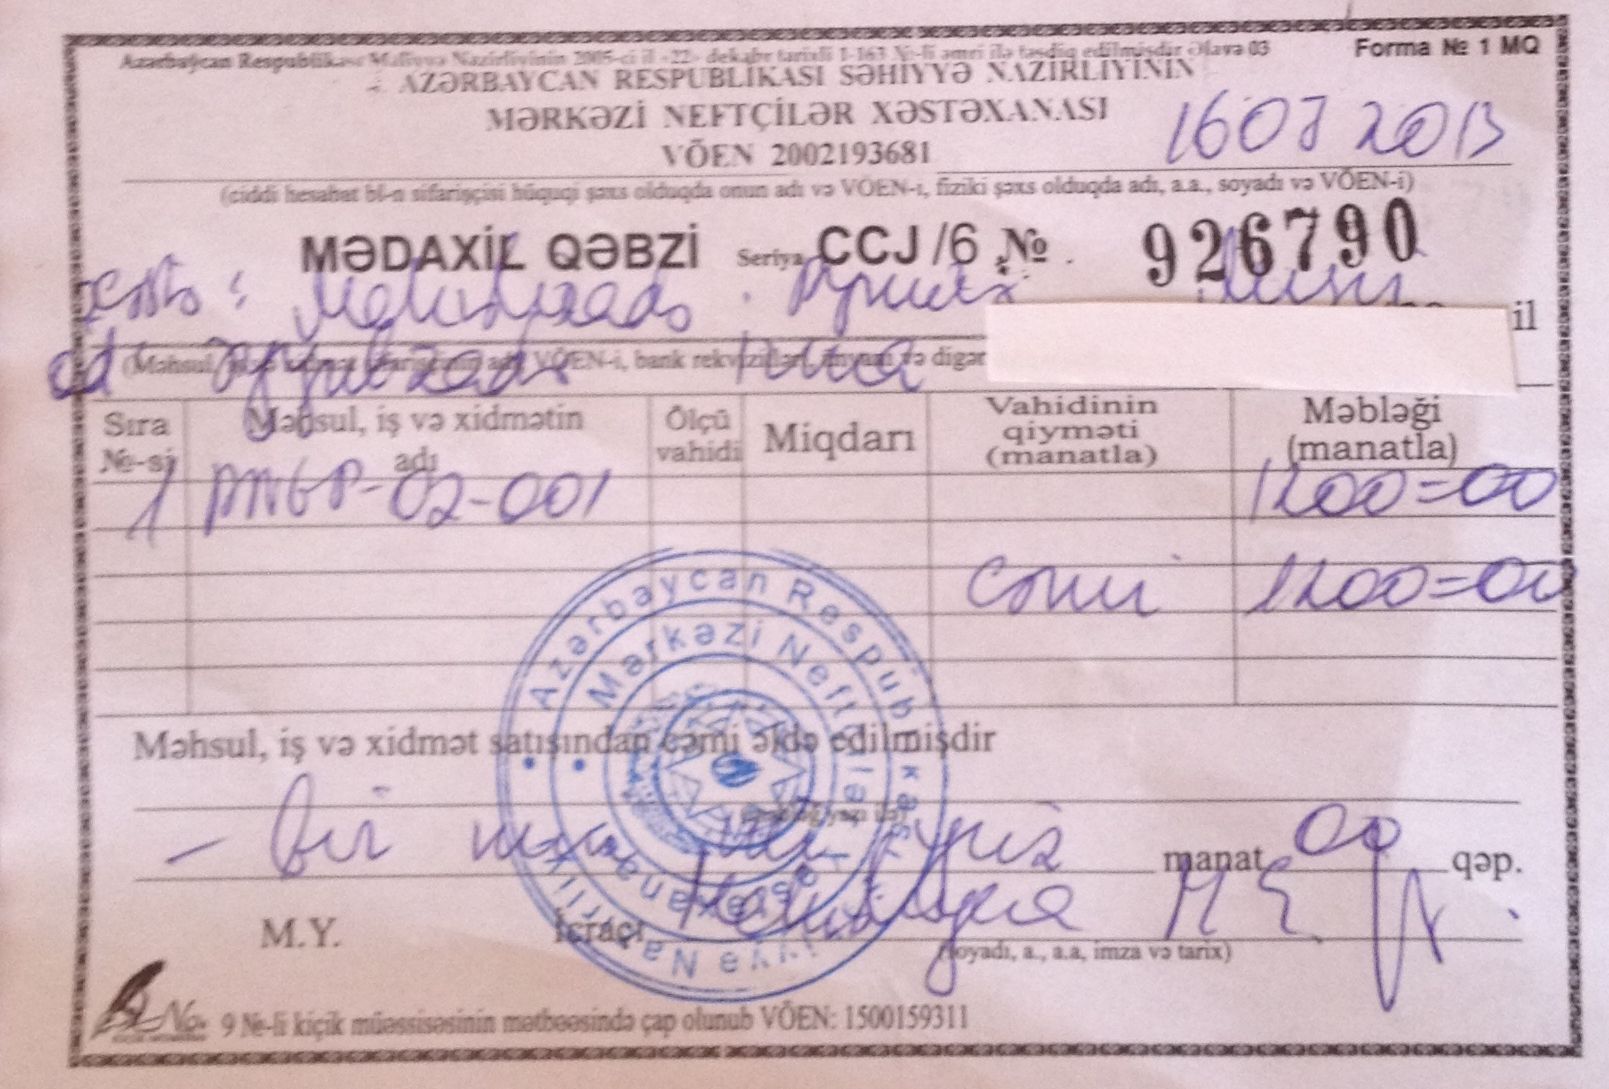 Azərbaycan Respublikası Maliyyə Nazirliyinin 2005-ci il «22» dekabr tarixli I-163 №-li əmri ilə təsdiq edilmişdir Əlavə 03
Forma № 1 MQ
AZƏRBAYCAN RESPUBLİKASI SƏHİYYƏ NAZİRLİYİNİN
MƏRKƏZİ NEFTÇİLƏR XƏSTƏXANASI
VÖEN 2002193681
(ciddi hesabat bl-n sifarişçisi hüquqi şəxs olduqda onun adı və VÖEN-ı, fiziki şəxs olduqda adı, a.a., soyadı və VÖEN-i)
MƏDAXİL QƏBZİ Seriya CCJ /6 № 926790
il
(Məhsul, VÖEN-i, bank rekvizitləri, və digər
Sıra №-si Məhsul, iş və xidmətin adı Ölçü vahidi Miqdarı Vahidinin qiyməti (manatla) Məbləği (manatla)
1 02-001 1200=00
Cəmi 1200=00
Məhsul, iş və xidmət satışından cəmi əldə edilmişdir
– bir min iki yüz manat 00 qəp.
M.Y. İcraçı
(soyadı, a., a.a, imza və tarix)
9 №-li kiçik müəssisəsinin mətbəəsində çap olunub VÖEN: 1500159311
Azərbaycan Respublikası Səhiyyə Nazirliyi
Mərkəzi Neftçilər Xəstəxanası